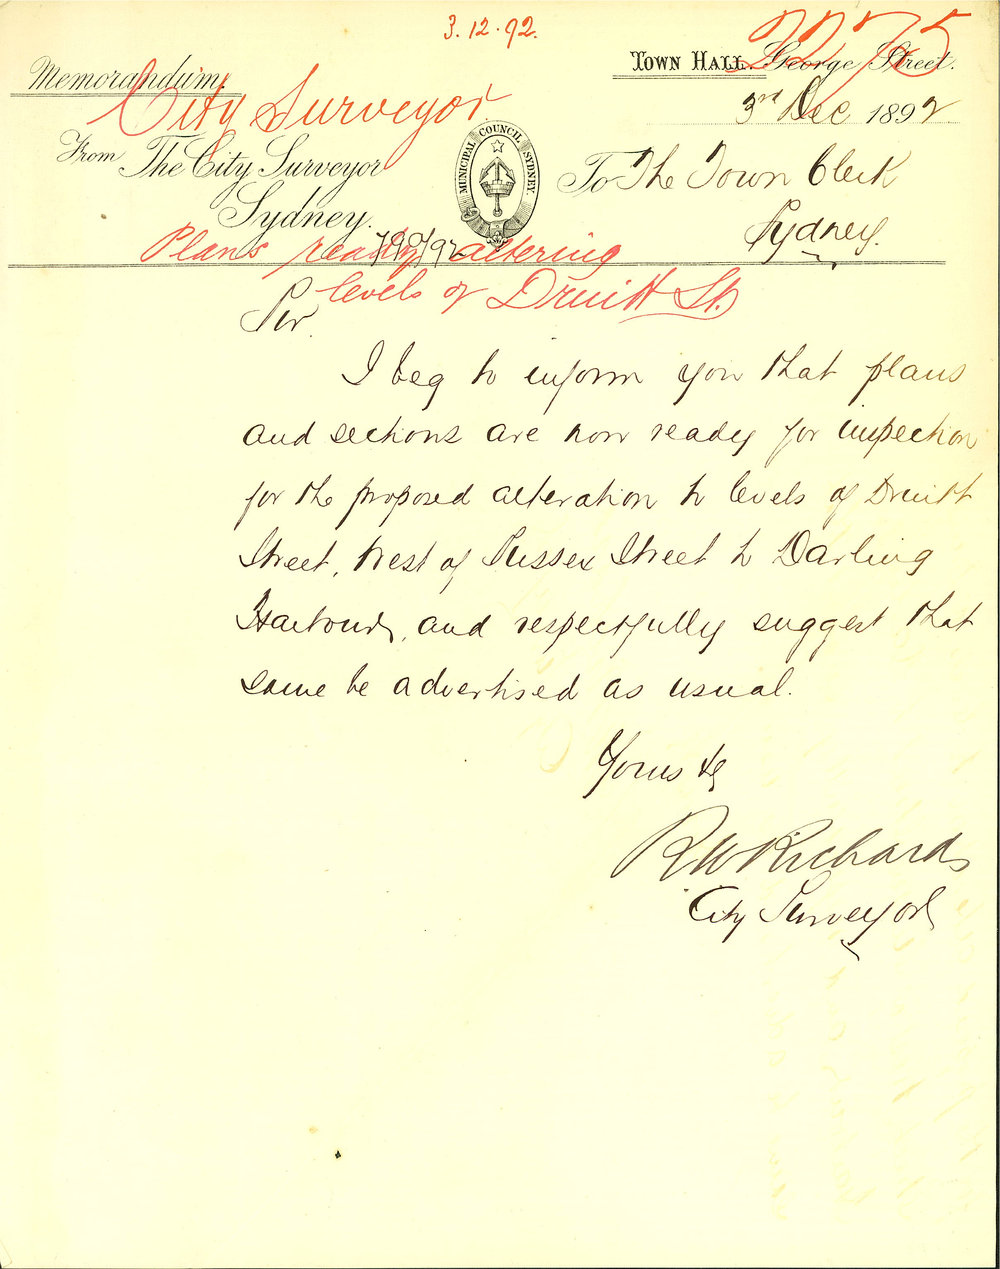 3.12.92.
2275
Memorandum.
Town Hall. George Street.
City Surveyor
3rd Dec 1892
From The City Surveyor
Sydney.
MUNICIPAL COUNCIL SYDNEY.
To The Town Clerk
Sydney.
Plans ready altering
levels of Druitt St.
Sir
I beg to inform you that plans
and sections are now ready for inspection
for the proposed alteration to levels of Druitt
Street, West of Sussex Street to Darling
Harbour, and respectfully suggest that
same be advertised as usual.
Yours &c
R W Richards
City Surveyor